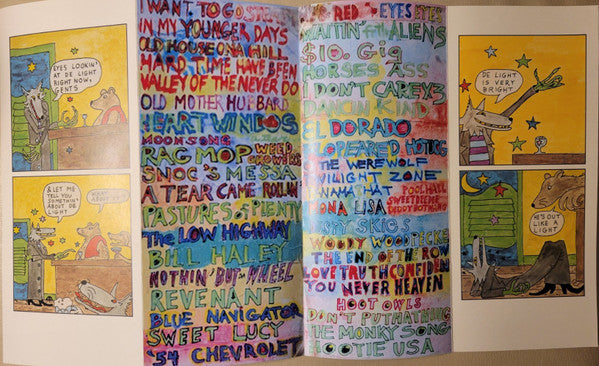 EYES LOOKIN'
AT DE LIGHT
RIGHT NOW,
GENTS
& LET ME
TELL YOU
SOMETHIN'
ABOUT DE
LIGHT
WHAT
ABOUT IT?
I WANT TO GO
IN MY YOUNGER DAYS
OLD HOUSE ON A HILL
HARD TIME HAVE BEEN
VALLEY OF THE NEVER DO
OLD MOTHER HUBBARD
HEART WINDOS
MOONSONG
RAG MOP WEED GROWERS
SNOC'S MESSA
A TEAR CAME ROLLIN'
PASTURES of PLENTY
The LOW HIGHWAY
BILL HALEY
NOTHIN' BUT-WHEEL
REVENANT
BLUE NAVIGATOR
SWEET LUCY
'54 CHEVROLET
RED EYES EYES
WAITIN' for the ALIENS
$10. Gig
HORSES ASS
I DON'T CAREY3
DANCIN KIND
EL DORADO
THE WEREWOLF
TWILIGHT ZONE
PANAMA HAT POOL HALL
MONA LISA
SPY SKIES
WOODY WOODPECKE
THE END OF THE ROW
LOVE TRUTH CONFIDEN
YOU NEVER HEAVEN
HOOT OWLS
DON'T PUT A THING
THE MONKY SONG
HOOTIE USA
DE LIGHT
IS VERY
BRIGHT
HE'S OUT
LIKE A
LIGHT